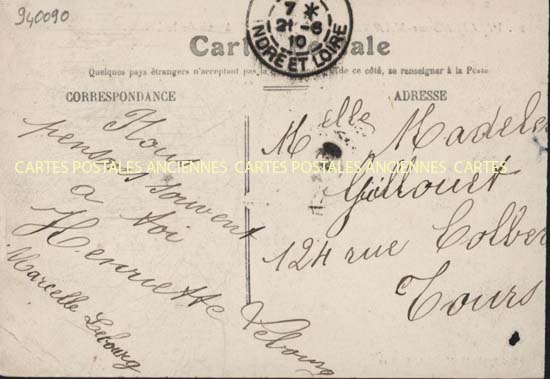 940090
7 *
21-6
10
INDRE ET LOIRE
Carte Postale
Quelques pays étrangers n'acceptant pas la de ce côté, se renseigner à la Poste
CORRESPONDANCE
ADRESSE
Nous
pensons souvent
a toi
Henriette Lebourg
Marcelle Lebourg
Melle Madele
Gillouet
124 rue Colber
Tours
CARTES POSTALES ANCIENNES CARTES POSTALES ANCIENNES CARTES